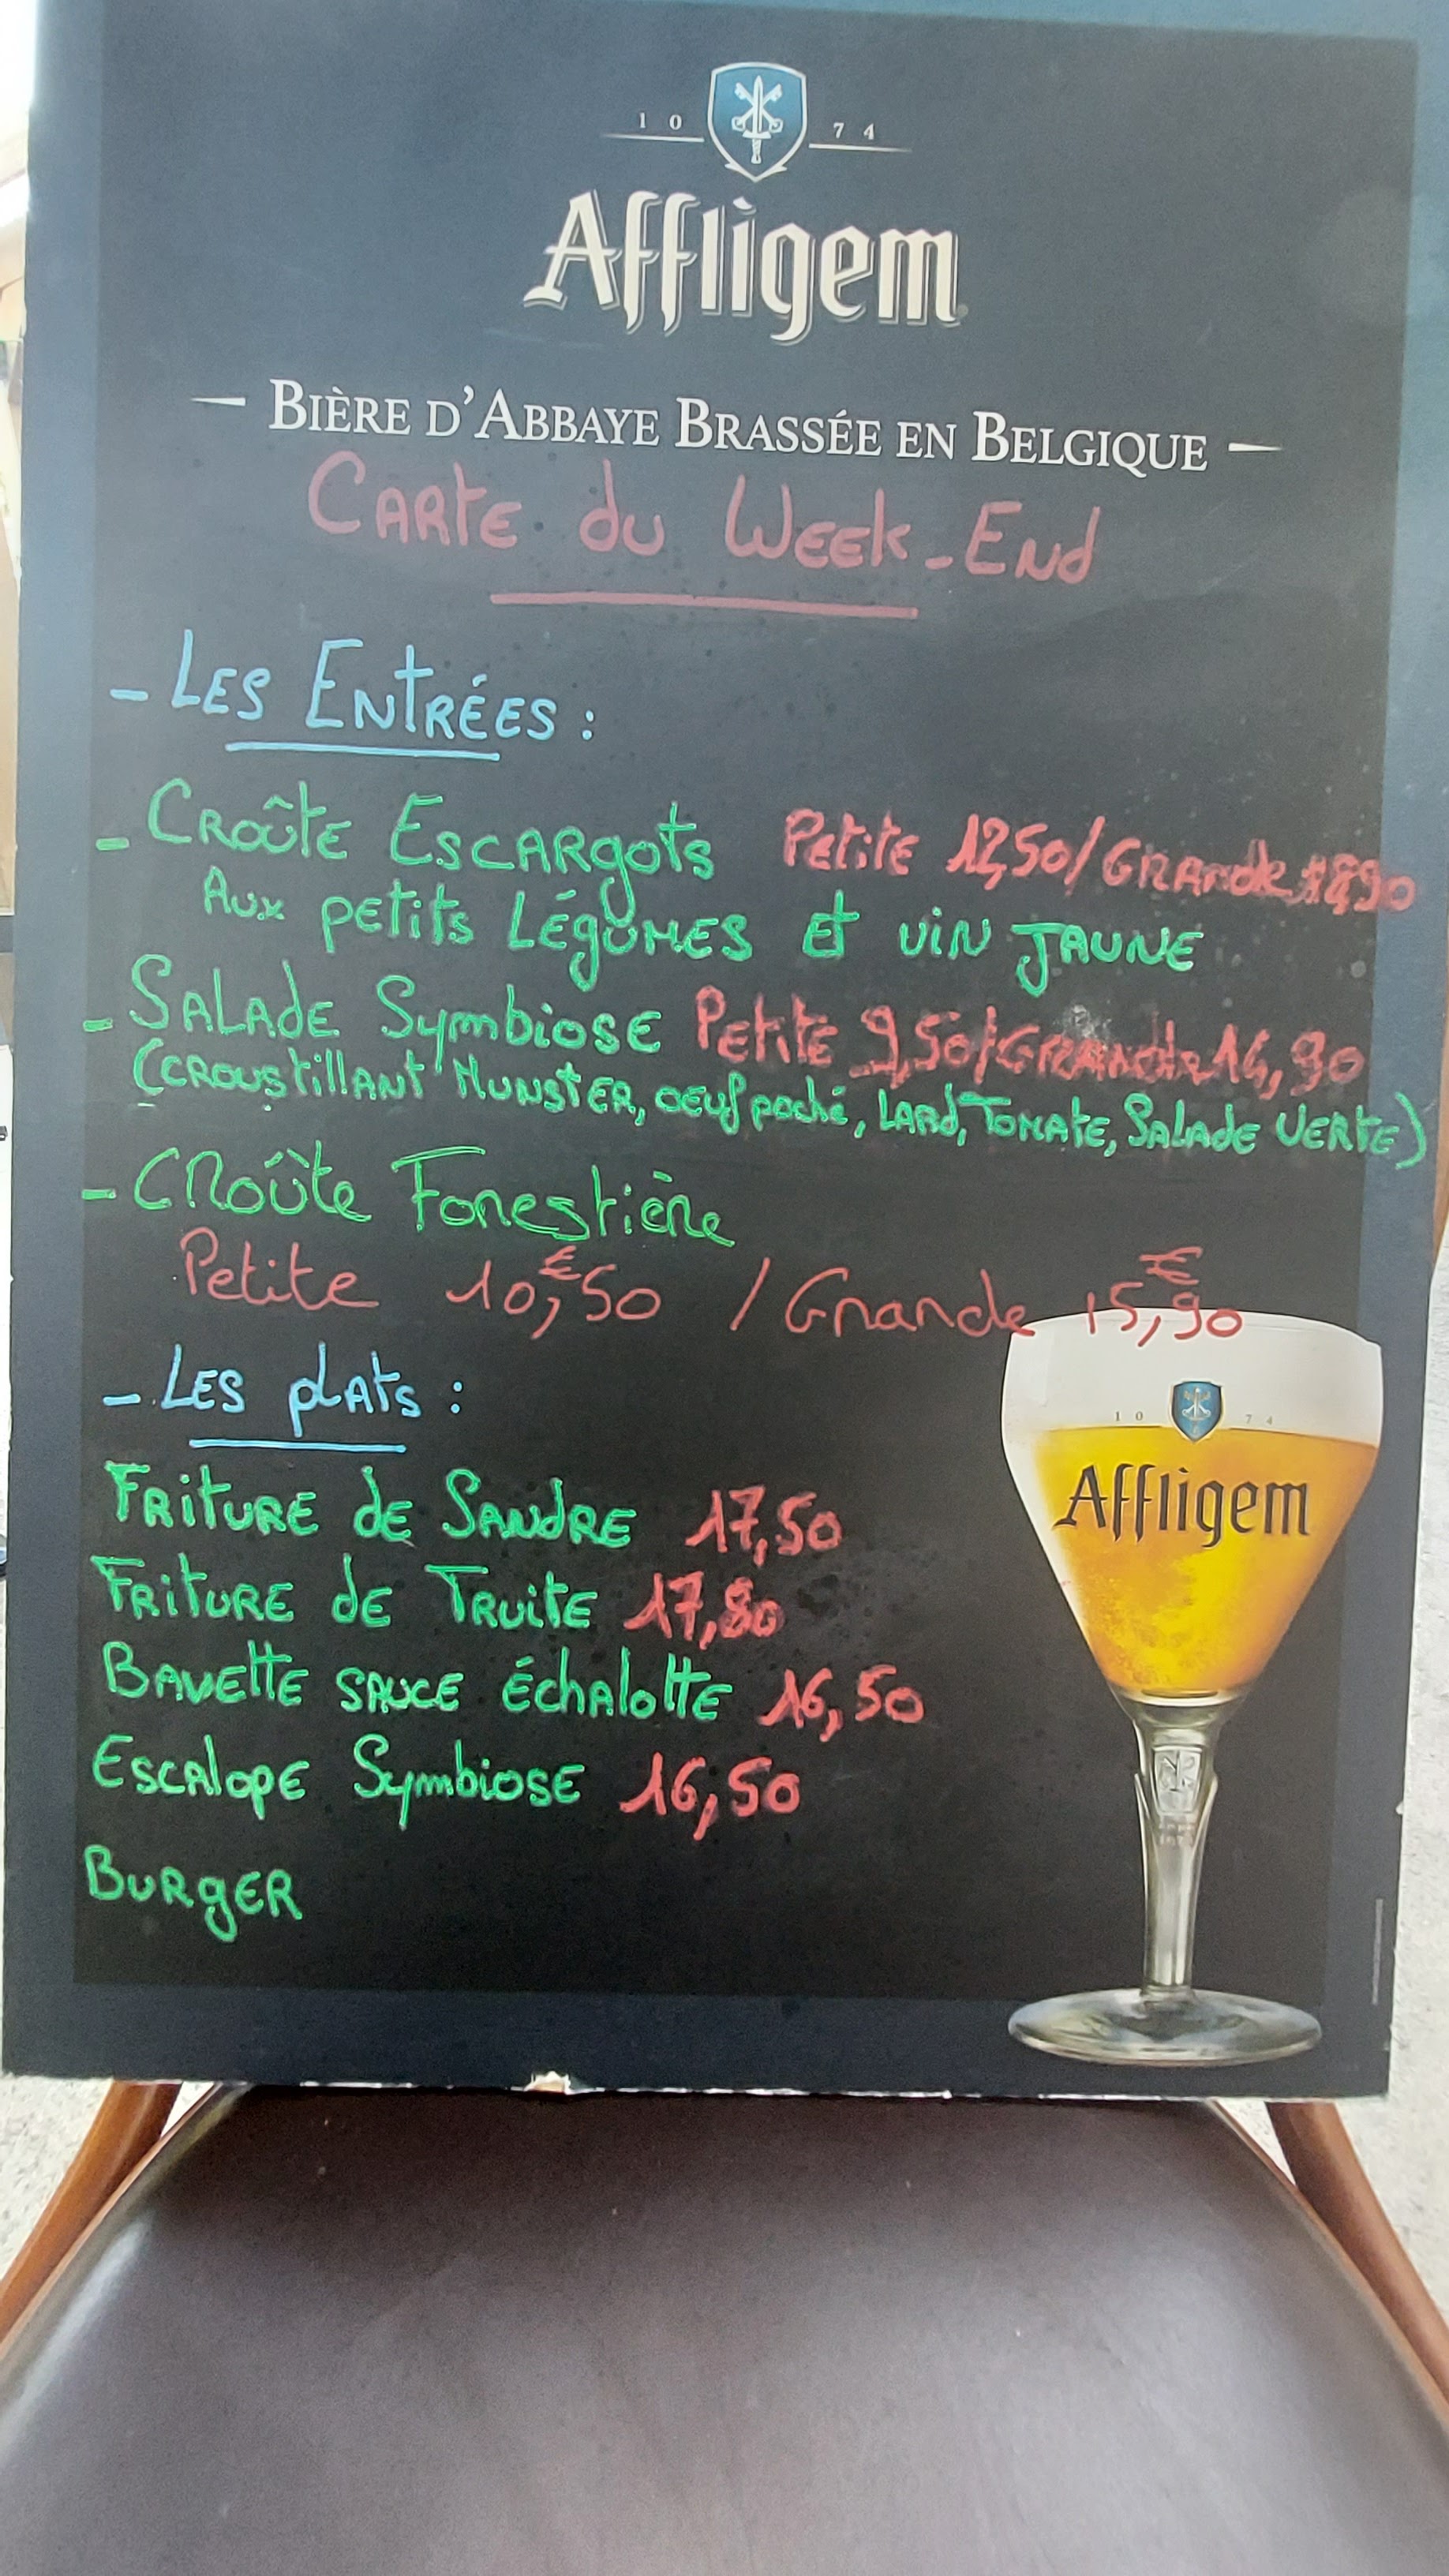 10 74
Affligem
— BIÈRE D'ABBAYE BRASSÉE EN BELGIQUE —
CARTE du WEEK-End
- LES ENTRÉES :
- CROÛTE ESCARgots Petite 12,50/GRANde
Aux petits LÉgUMES Et viN JAUNE
- SALADE Symbiose Petite 9,50/GRANde 14,90
(CROUStillANT MUNSTER, oeuf poché, LARd, TOMATE, SALADE VERTE)
- CROÛte Forestière
Petite 10,€50 / Grande 15,€90
- LES plAts :
FRITURE de SANDRE 17,50
FRITURE de TRUITE 17,80
BAVEttE SAUCE ÉchAlottE 16,50
EscAlopE SymbiosE 16,50
BURgER
10 74
Affligem